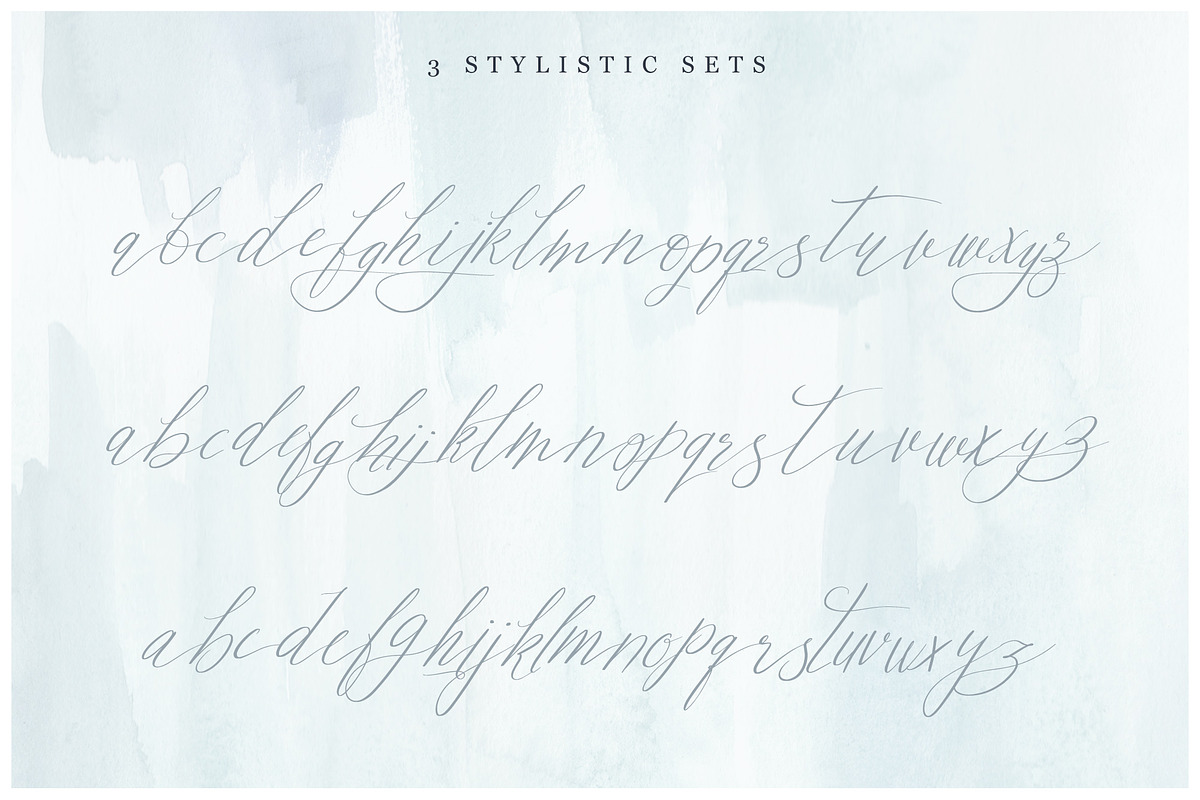 3 STYLISTIC SETS
abcdefghijklmnopqrstuvwxyz
abcdefghijklmnopqrstuvwxyz
abcdefghijklmnopqrstuvwxyz